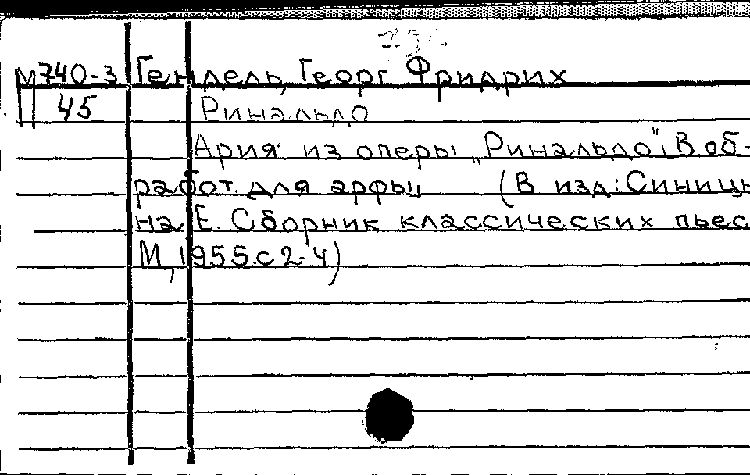 М740-3 Гендель, Георг Фридрих
45 Ринальдо
Ария из оперы "Ринальдо". В об-
работ. для арфы (В изд: Синицы-
на Е. Сборник классических пьес.
М, 1955. с 2-4)